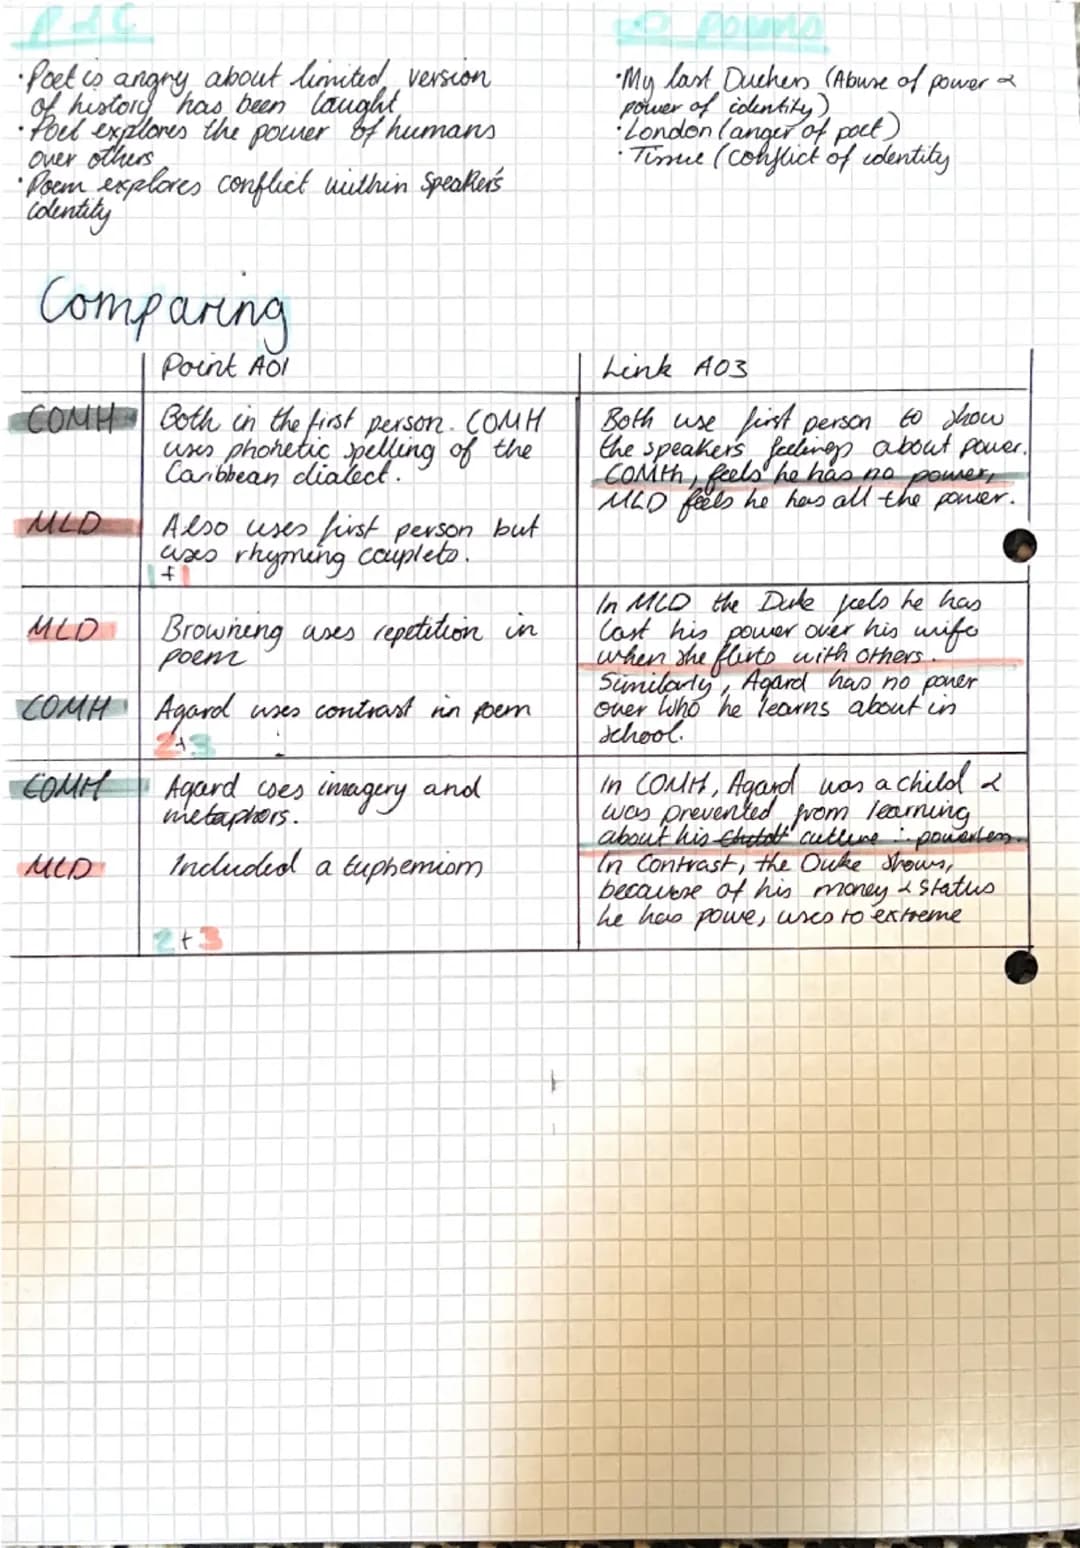 P & C
poems
·Poet is angry about limited version
of history has been taught
·Poet explores the power of humans
over others
·Poem explores conflict within Speaker's
identity
·My last Duchess (Abuse of power &
power of identity)
·London (anger of poet)
·Tissue (conflict of identity
Comparing
Point AO1
Link AO3
COMH
Both in the first person. COMH
uses phonetic spelling of the
Caribbean dialect.
Both use first person to show
the speakers' feelings about power.
COMH, feels he has no power,
MLD feels he has all the power.
MLD
Also uses first person but
uses rhyming couplets.
1+1
MLD
Browning uses repetition in
poem
In MLD the Duke feels he has
lost his power over his wife
when she flirts with others.
Similarly, Agard has no power
over who he learns about in
school.
COMH
Agard uses contrast in poem
2+3
COMH
Agard uses imagery and
metaphors.
In COMH, Agard was a child &
was prevented from learning
about his culture ∴ powerless.
In Contrast, the Duke shows,
because of his money & status
he has powe, uses to extreme
MLD
Included a Euphemism
2+3